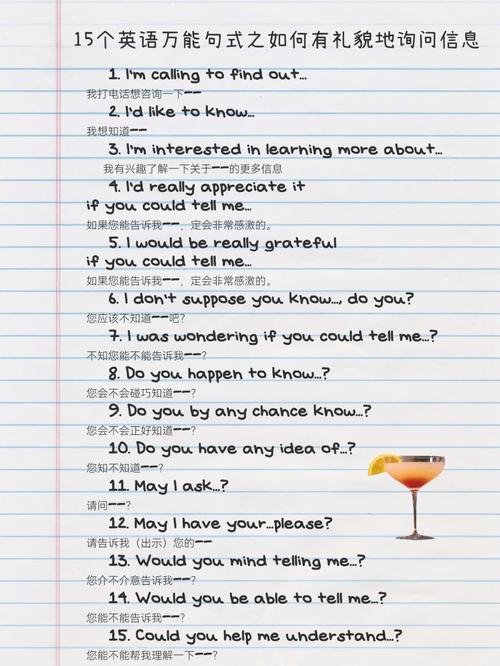 15个英语万能句式之如何有礼貌地询问信息
1. I'm calling to find out...
我打电话想咨询一下——
2. I'd like to know...
我想知道——
3. I'm interested in learning more about...
我有兴趣了解一下关于——的更多信息
4. I'd really appreciate it
if you could tell me...
如果您能告诉我——，定会非常感激的。
5. I would be really grateful
if you could tell me...
如果您能告诉我——，定会非常感激的。
6. I don't suppose you know..., do you?
您应该不知道——吧?
7. I was wondering if you could tell me...?
不知您能不能告诉我——?
8. Do you happen to know...?
您会不会碰巧知道——?
9. Do you by any chance know...?
您会不会正好知道——?
10. Do you have any idea of...?
您知不知道——?
11. May I ask...?
请问——?
12. May I have your...please?
请告诉我（出示）您的——
13. Would you mind telling me...?
您介不介意告诉我——?
14. Would you be able to tell me...?
您能不能告诉我——?
15. Could you help me understand...?
您能不能帮我理解一下——?